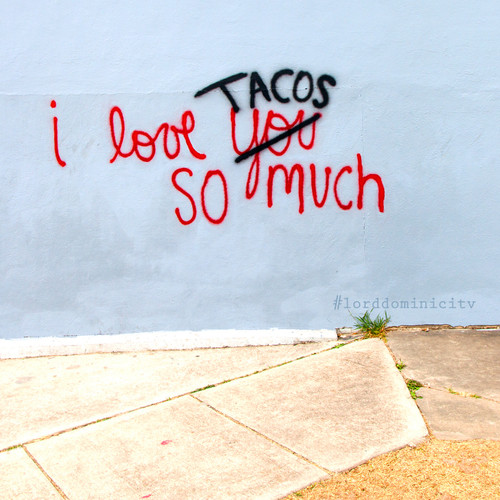 TACOS
i love you
so much
#lorddominicitv